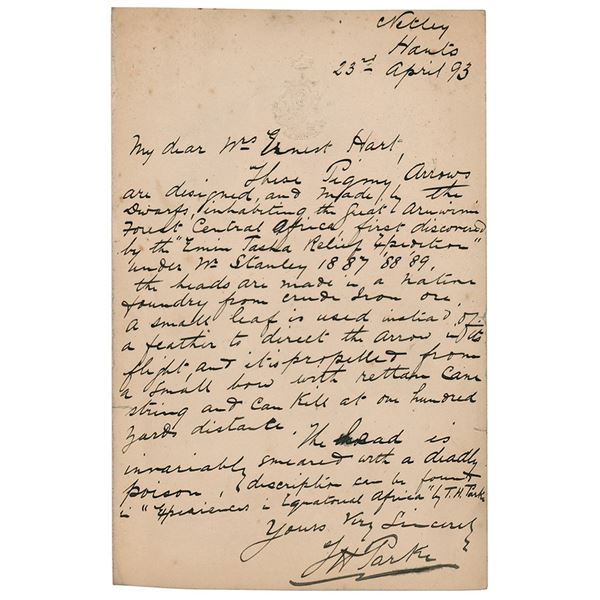 Netley
Hants
23rd April 93
My dear Mrs Ernest Hart,
These Pigmy Arrows
are designed, and made, by the
Dwarfs, inhabiting the Great Aruwimi
Forest Central Africa, first discovered
by the "Emin Pasha Relief Expedition"
under Mr Stanley 1887, 88, 89,
the heads are made in a native
foundry from crude Iron ore,
a small leaf is used instead of
a feather to direct the arrow in its
flight, and it is propelled from
a small bow with rattan cane
string and can kill at one hundred
yards distance. The head is
invariably smeared with a deadly
poison, (description can be found
in "Experiences in Equatorial Africa" by T. H. Parke
Yours Very Sincerely
T H Parke